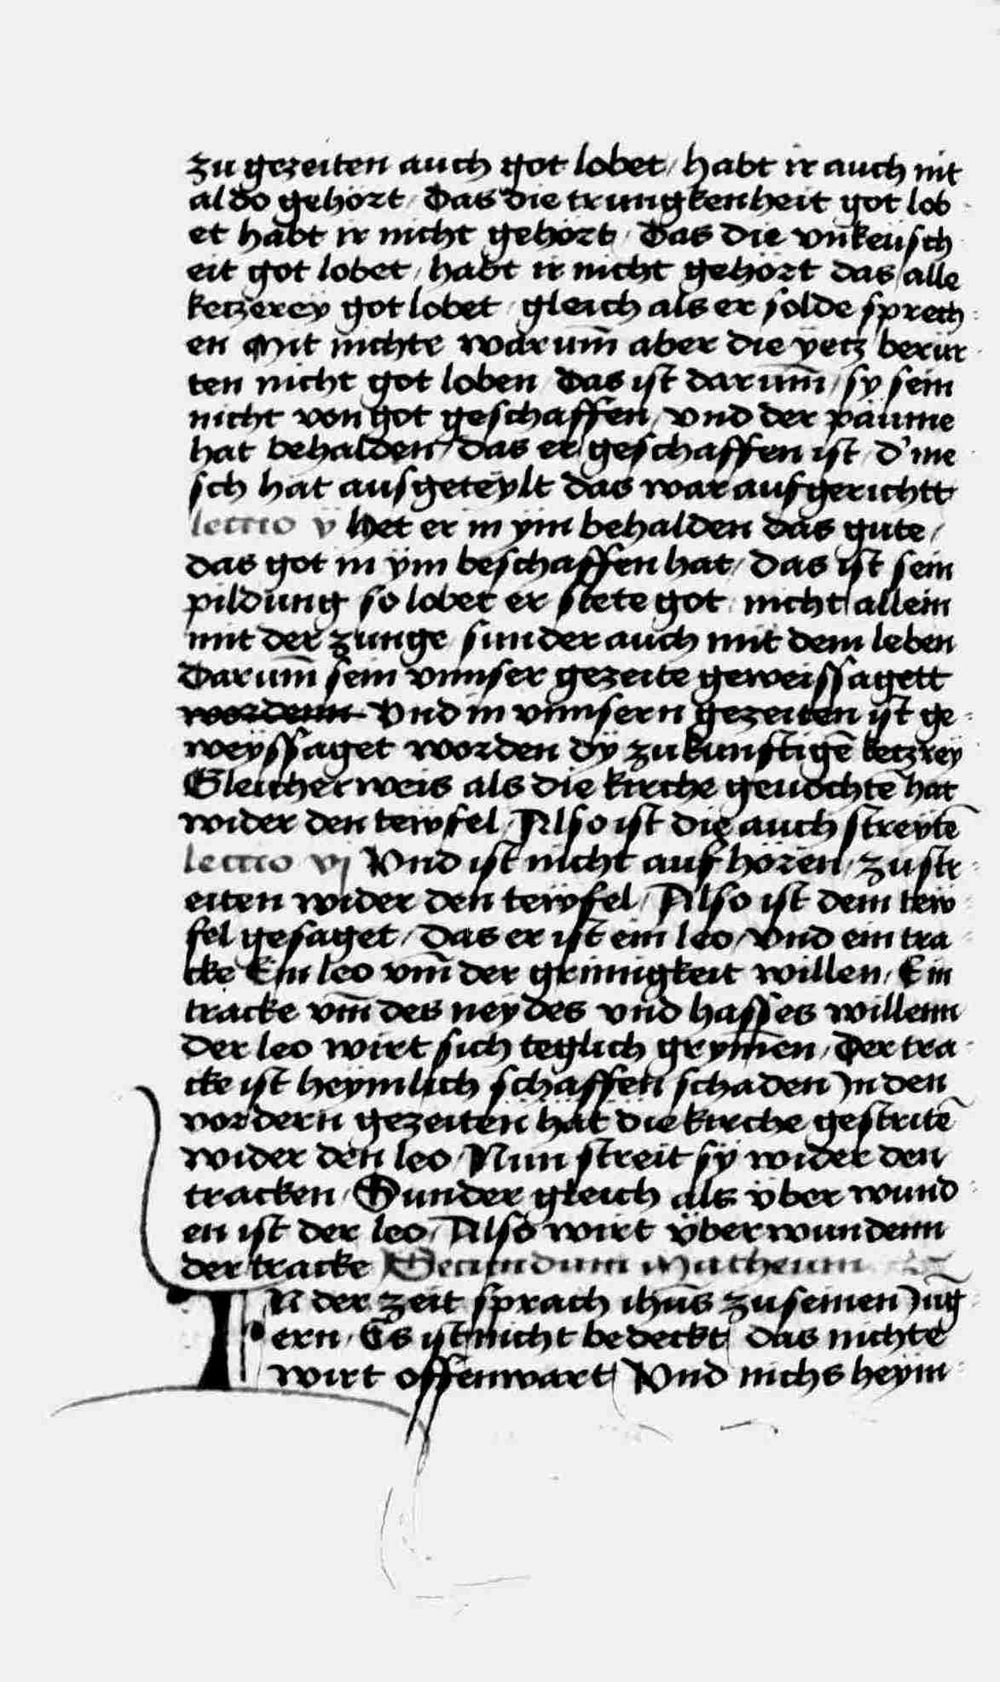 zu gezeiten auch got lobet / habt ir auch nit
aldo gehort / Das die trungkenheit got lob
et habt ir nicht gehort / Das die vnkeusch
eit got lobet / habt ir nicht gehort das alle
ketzerey got lobet / gleich als er solde sprech
en Mit nichte warum̄ aber die yetz berür
ten nicht got loben / Das ist darum̄ / sy sein
nicht von got geschaffen / vnd der paume
hat behalden / das er geschaffen ist / d' me
sch hat ausgeteylt das war aufgerichtt
lectio v Het er in ym behalden das gute /
das got in ym beschaffen hat / Das ist sein
pildung so lobet er stete got nicht allein
mit der zunge sunder auch mit dem leben
Darum̄ sein vnnser gezeite geweissagett
wordenn Vnd in vnnsern gezeiten ist ge
weyssaget worden dy zukunftigē ketzrey
Gleicher weis als die kirche geuochtē hat
wider den tewfel / Also ist die auch streytē
lectio vj Vnd ist nicht aufhören / zu str
eiten wider den tewfel / Also ist dem tew
fel gesaget / das er ist ein leo / vnd ein tra
cke Ein leo vm̄ der grimigkeit willen / Ein
tracke vm̄ des neydes vnd hasses willenn
der leo wirt sich teglich grym̄en / Der tra
cke ist heymlich schaffen schaden In den
vordern gezeiten hat die kirche gestritē
wider den leo / Nun streit sy wider den
tracken / Sunder gleich als vber wund
en ist der leo / Also wirt vberwundenn
der tracke Secundum Matheum
In der zeit sprach ihūs zu seinen Iūg
ern / Es ist nicht bedeckt / das nichte
wirt offenwart / Vnd nichs heym